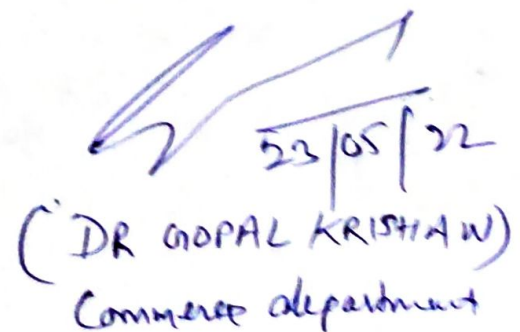 23/05/22
(DR GOPAL KRISHAN)
Commerce department